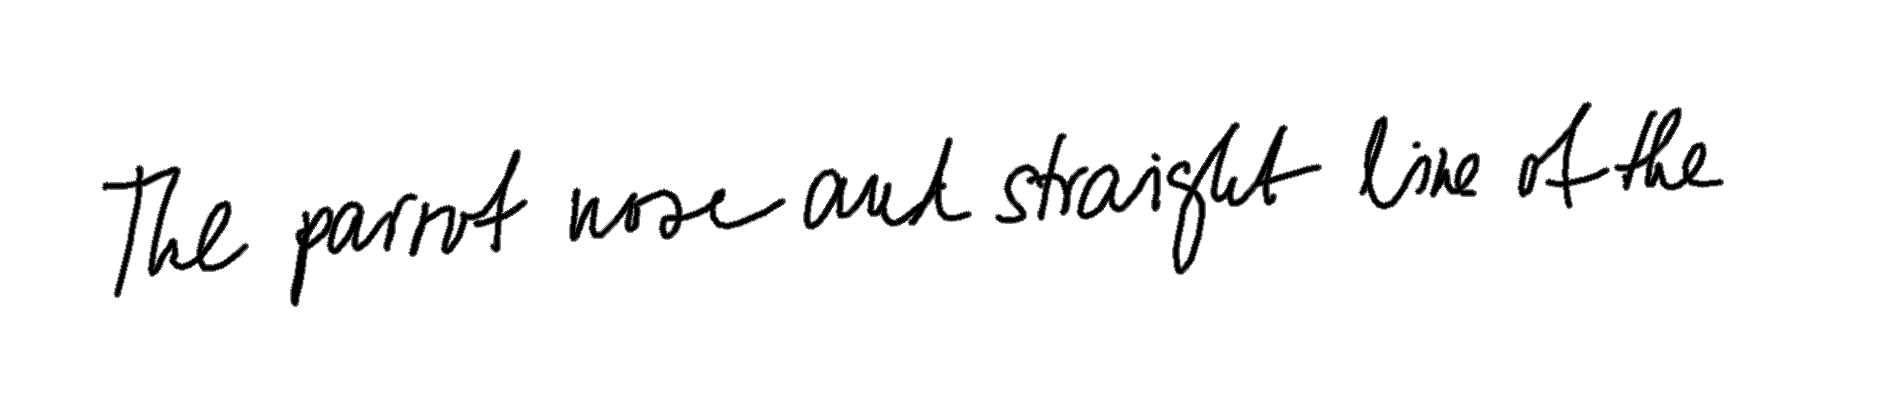 The parrot nose and straight line of the